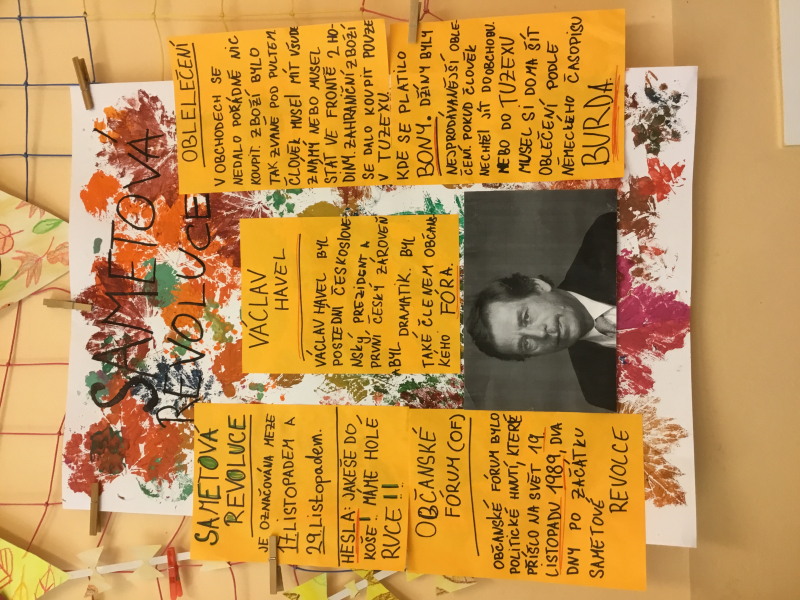 SAMETOVÁ
REVOLUCE
SAMETOVÁ
REVOLUCE
JE OZNAČOVÁNA MEZI
17. LISTOPADEM A
29. Listopadem.
HESLA: JAKEŠE DO
KOŠE!, MÁME HOLÉ
RUCE!!
OBČANSKÉ
FÓRUM (OF)
OBČANSKÉ FÓRUM BYLO
POLITICKÉ HNUTÍ, KTERÉ
PŘIŠLO NA SVĚT 19.
LISTOPADU 1989, DVA
DNY PO ZAČÁTKU
SAMETOVÉ
REVOLCE
VÁCLAV
HAVEL
VÁCLAV HAVEL BYL
POSLEDNÍ ČESKOSLOVE-
NSKÝ PREZIDENT A
PRVNÍ ČESKÝ ZÁROVEŇ
A BYL DRAMATIK. BYL
TAKÉ ČLENEM OBČANS-
KÉHO FÓRA.
OBLELEČENÍ
V OBCHODECH SE
NEDALO POŘÁDNĚ NIC
KOUPIT. ZBOŽÍ BYLO
TAK ZVANĚ POD PULTEM.
ČLOVĚK MUSEL MÍT VŠUDE
ZNÁMÝ NEBO MUSEL
STÁT VE FRONTĚ 2 HO-
DINY. ZAHRANIČNÍ ZBOŽÍ
SE DALO KOUPIT POUZE
V TUZEXU.
KDE SE PLATILO
BONY. DŽÍNY BYLY
NEJPRODÁVANĚJŠÍ OBLE-
ČENÍ. POKUD ČLOVĚK
NECHTĚL JÍT DO OBCHODU
NEBO DO TUZEXU
MUSEL SI DOMA ŠÍT
OBLEČENÍ PODLE
NĚMECKÉHO ČASOPISU
BURDA.